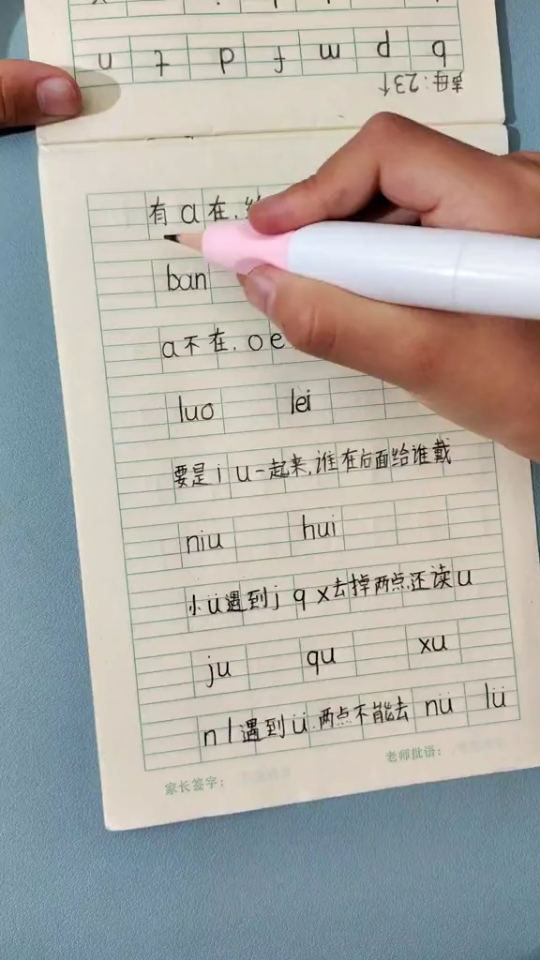 声母:23个
b p m f d t n
有 a 在,给
ban
a 不 在, o e
luo lei
要是 i u 一起来,谁在后面给谁戴
niu hui
小ü遇到 j q x 去掉两点,还读 u
ju qu xu
n l 遇到 ü 两点不能去 nü lü
家长签字: 老师批语: